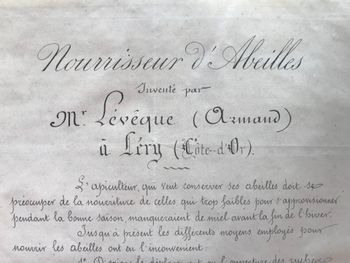 Nourrisseur d'Abeilles
Inventé par
Mr. Lévêque (Armand)
à Léry (Côte-d'Or).
L'apiculteur, qui veut conserver ses abeilles doit se
préoccuper de la nourriture de celles qui trop faibles pour s'approvisionner
pendant la bonne saison manqueraient de miel avant la fin de l'hiver.
Jusqu'à présent les différents moyens employés pour
nourrir les abeilles ont eu l'inconvenient: